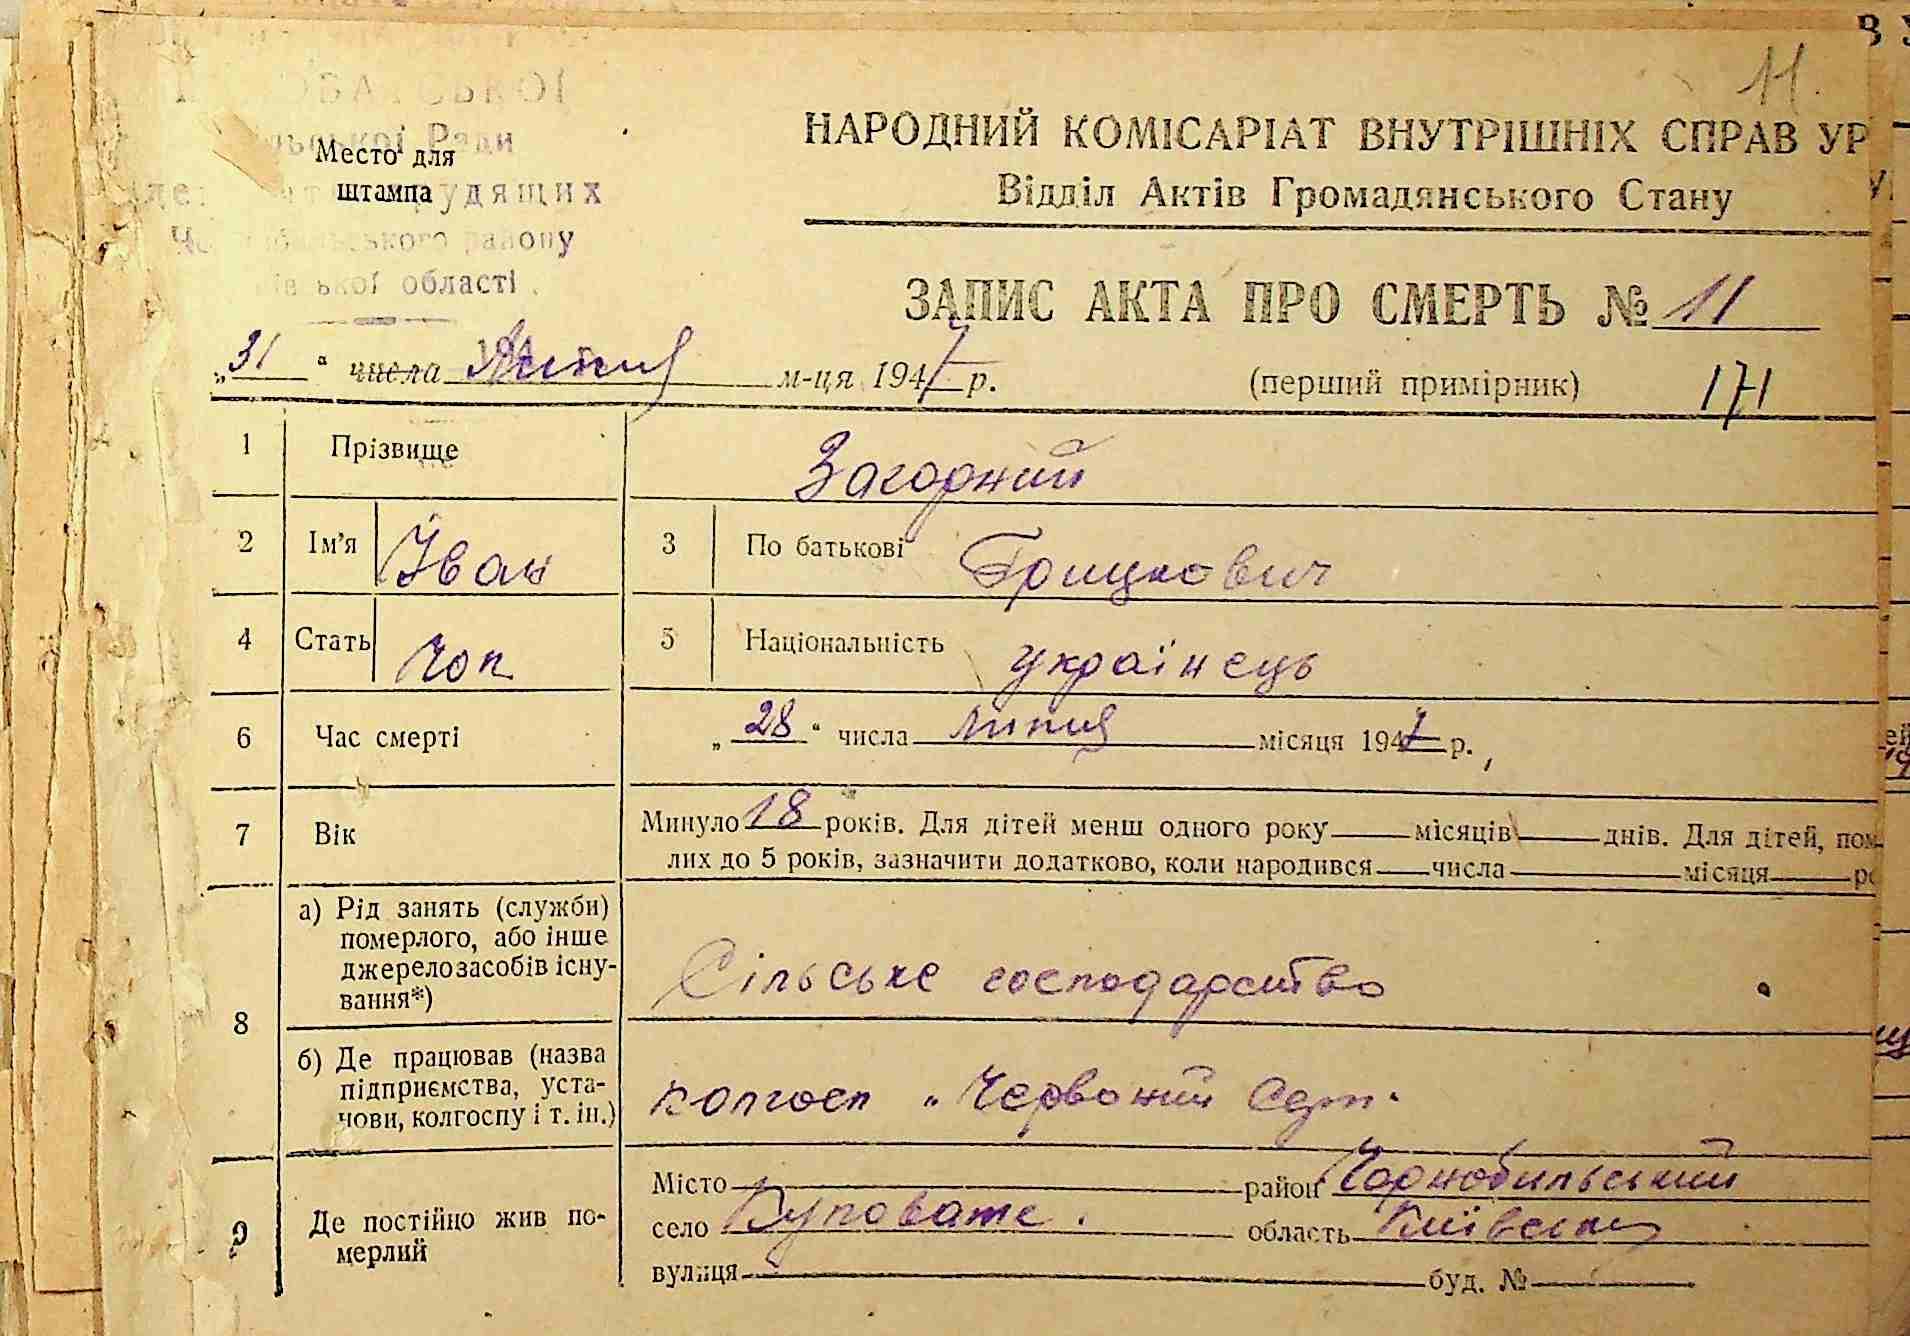 11.
НАРОДНИЙ КОМІСАРІАТ ВНУТРІШНІХ СПРАВ УР
Відділ Актів Громадянського Стану
Ради
Место для
штампа
рудящих
району
області
ЗАПИС АКТА ПРО СМЕРТЬ № 11
„31“ числа Липня м-ця 1947 р. (перший примірник) 171
1 Прізвище Загорний
2 Ім'я Іван 3 По батькові Грицкович
4 Стать Чол 5 Національність українець
6 Час смерті „28“ числа липня місяця 1947 р.
7 Вік Минуло 18 років. Для дітей менш одного року місяців днів. Для дітей, пом-
лих до 5 років, зазначити додатково, коли народився числа місяця ро
8 а) Рід занять (служби)
померлого, або інше
джерело засобів існу-
вання*)
Сільське господарство
б) Де працював (назва
підприємства, уста-
нови, колгоспу і т. ін.)
колгосп „Червоний
9 Де постійно жив по-
мерлий
Місто район Чорнобильський
село Куповате. область Київська
вулиця буд. №